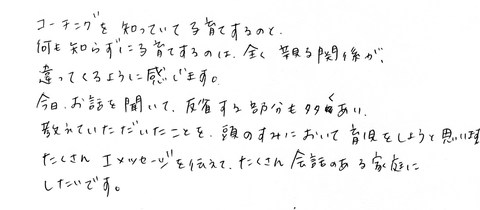 コーチングを知っていて子育てするのと、
何も知らずに子育てするのは、全く親子関係が、
違ってくるように感じます。
今日、お話を聞いて、反省する部分も多くあり、
教えていただいたことを、頭のすみにおいて育児をしようと思います
たくさん Iメッセージを伝えて、たくさん会話のある家庭に
したいです。